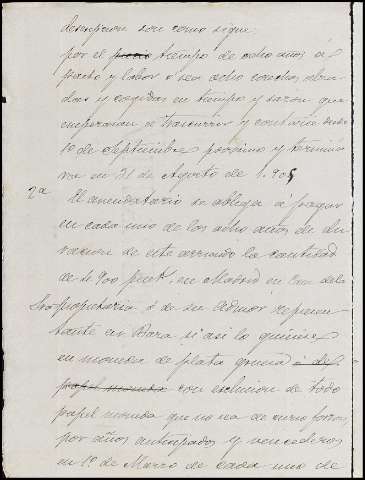 descripcion son como sigue:
por el precio tiempo de ocho años á
pasto y labor ó sea ocho cosechas
das y cogidas en tiempo y sazon que
empezarán á trascurrir y contarse desde
1º de Septiembre proximo y termina
ra en 31 de Agosto de 1.905
2ª El arrendatario se obliga á pagar
en cada uno de los ocho años de du
racion de este arriendo la cantidad
de 4.900 peset. en Madrid en Casa de la
Sra propietaria ó de su Admor represen
tante en si asi lo quisiere
en moneda de plata gruesa ó del
papel moneda con esclusion de todo
papel moneda que no sea de curso forzoso,
por años anticipados y vencederos
en 1º de Marzo de cada uno de